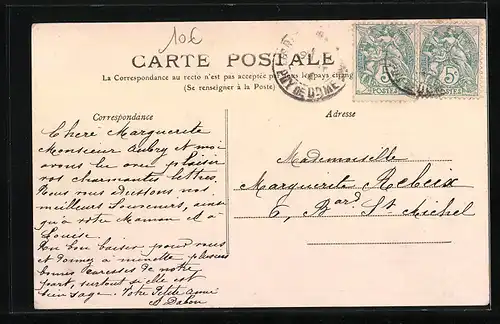 10€
CARTE POSTALE
La Correspondance au recto n'est pas acceptée par tous les pays étrang
(Se renseigner à la Poste)
PUY DE DOME
5c
5c
POSTES
POSTES
Correspondance
Adresse
Chère Marguerite
Monsieur Aubry et moi
avons lu avec plaisir
vos charmantes lettres.
Nous vous adressons nos
meilleurs Souvenirs, ainsi
qu'à votre Maman et à
Louise.
Un bon baiser pour vous
et donnez à minette plusieurs
bonnes Caresses de notre
part, surtout si elle est
bien sage. Votre Petite amie
Mademoiselle
Marguerite
6, Bard St Michel